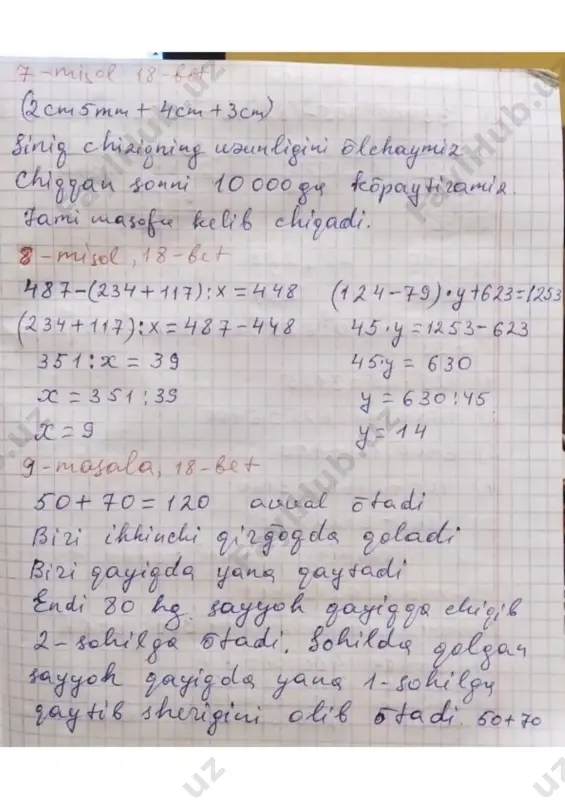 7-misol 18-bet
(2cm5mm + 4cm + 3cm)
Siniq chiziqning uzunligini ōlchaymiz
Chiqqan sonni 10 000 ga kōpaytiramiz.
Jami masofa kelib chiqadi.
8-misol, 18-bet
487-(234+117):x=448 (124-79)·y+623=1253
(234+117):x=487-448 45·y=1253-623
351:x=39 45·y=630
x=351:39 y=630:45
x=9 y=14
9-masala, 18-bet
50+70=120 avval ōtadi
Biri ikkinchi qirḡoqda qoladi
Biri qayiqda yana qaytadi
Endi 80 kg. sayyoh qayiqqa chiqib
2-sohilga ōtadi. Sohilda qolgan
sayyoh qayiqda yana 1-sohilga
qaytib sherigini olib ōtadi. 50+70
FaylHub.uz